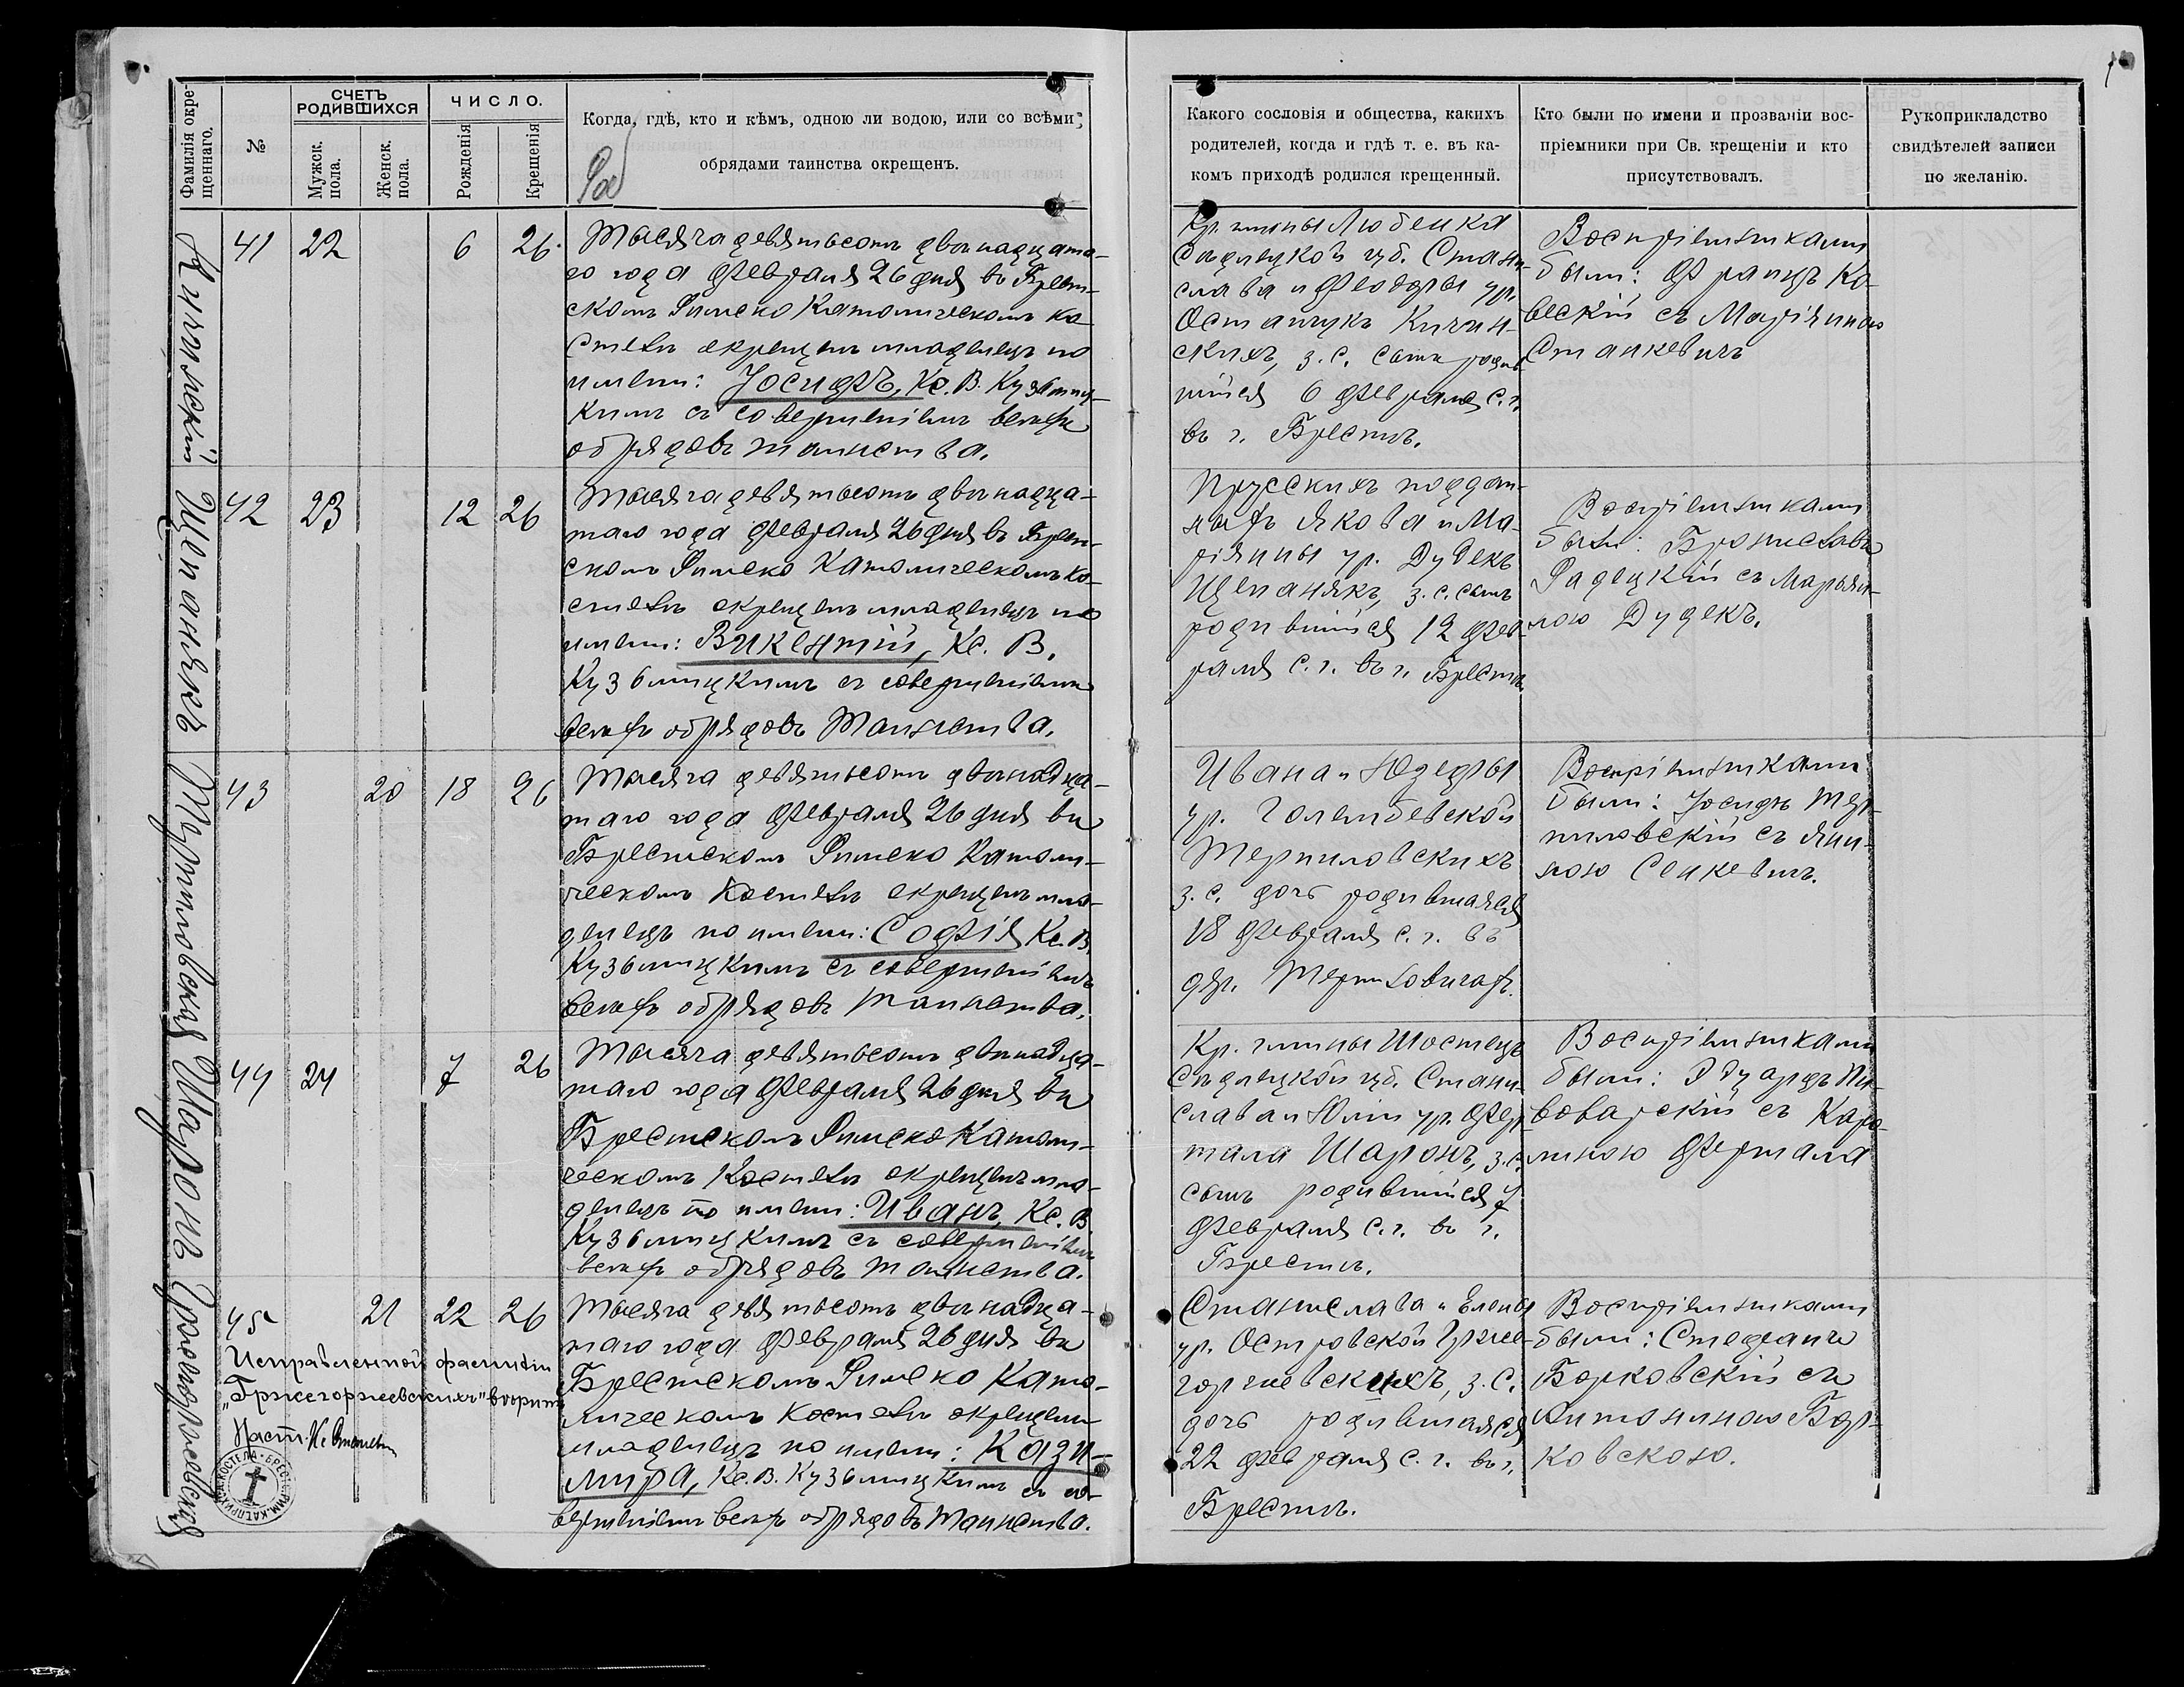 Фамилія окре-
щеннаго.
№
СЧЕТЪ
РОДИВШИХСЯ
Мужск.
пола.
Женск.
пола.
ЧИСЛО.
Рожденія
Крещенія
Когда, гдѣ, кто и кѣмъ, одною ли водою, или со всѣми
обрядами таинства окрещенъ.
Какого сословія и общества, какихъ
родителей, когда и гдѣ т. е. въ ка-
комъ приходѣ родился крещенный.
Кто были по имени и прозванію вос-
пріемники при Св. крещеніи и кто
присутствовалъ.
Рукоприкладство
свидѣтелей записи
по желанію.
41 22 6 26
Тысяча девятьсотъ двѣнадцата-
го года Февраля 26 дня въ Брест-
скомъ Римско Католическомъ ко-
стелѣ окрещенъ младенецъ по
имени: Іосифъ, Кс. В. Кузьмиц-
кимъ съ совершеніемъ всѣхъ
обрядовъ таинства.
Кр. гмины
Сѣдлецкой губ. Стани-
слава и Феодоры ур.
Остапчукъ Кичин-
скихъ, з. с. сынъ родив-
шійся 6 февраля с. г.
въ г. Брестѣ.
Воспріемниками
были: Францъ Ко-
вескій съ Маріянною
Станкевичъ
Щепанякъ
42 23 12 26
Тысяча девятьсотъ двѣнадца-
таго года Февраля 26 дня въ Брест-
скомъ Римско Католическомъ ко-
стелѣ окрещенъ младенецъ по
имени: Викентій, Кс. В.
Кузьмицкимъ съ совершеніемъ
всѣхъ обрядовъ Таинства.
Прусскихъ поддан-
ныхъ Якова и Ма-
ріянны ур. Дудекъ
Щепанякъ, з. с. сынъ
родившійся 12 фев-
раля с. г. въ г. Брестѣ.
Воспріемниками
были: Брониславъ
Радецкій съ Марьян-
ною Дудекъ.
Терпиловская
43 20 18 26
Тысяча девятьсотъ двѣнадца-
таго года Февраля 26 дня въ
Брестскомъ Римско Католи-
ческомъ Костелѣ окрещенъ мла-
денецъ по имени: Софія Кс. В.
Кузьмицкимъ съ совершеніемъ
всѣхъ обрядовъ таинства.
Ивана и Юзефы
ур. Голембевской
Терпиловскихъ
з. с. дочь родившаяся
18 Февраля с. г. въ
дер. Терпиловичахъ.
Воспріемниками
были: Іосифъ Тер-
пиловскій съ Яни-
ною Сенкевичъ.
Шаронъ
44 24 7 26
Тысяча девятьсотъ двѣнадца-
таго года Февраля 26 дня въ
Брестскомъ Римско Католи-
ческомъ Костелѣ окрещенъ мла-
денецъ по имени: Иванъ, Кс. В.
Кузьмицкимъ съ совершеніемъ
всѣхъ обрядовъ таинства.
Кр. гмины
Сѣдлецкой губ. Стани-
слава и Юліи ур. Фер-
тала Шаронъ, з. с.
сынъ родившійся 7
Февраля с. г. въ г.
Брестѣ.
Воспріемниками
были: Эдуардъ Пи-
воварскій съ Каро-
линою Фертала
45 21 22 26
Исправленной фамиліи
"Гржегоржевскихъ" вѣрить
Наст. Кс.
КОСТЕЛА • БРЕСТ. РИМ. КАТ. ПРИХ.
Тысяча девятьсотъ двѣнадца-
таго года Февраля 26 дня въ
Брестскомъ Римско Като-
лическомъ Костелѣ окрещенъ
младенецъ по имени: Кази-
мира, Кс. В. Кузьмицкимъ съ со-
вершеніемъ всѣхъ обрядовъ Таинства.
Станислава и Елены
ур. Островской Грже-
горжевскихъ, з. с.
дочь родившаяся
22 февраля с. г. въ г.
Брестѣ.
Воспріемниками
были: Стефанъ
Борковскій съ
Антониною Бор-
ковскою.